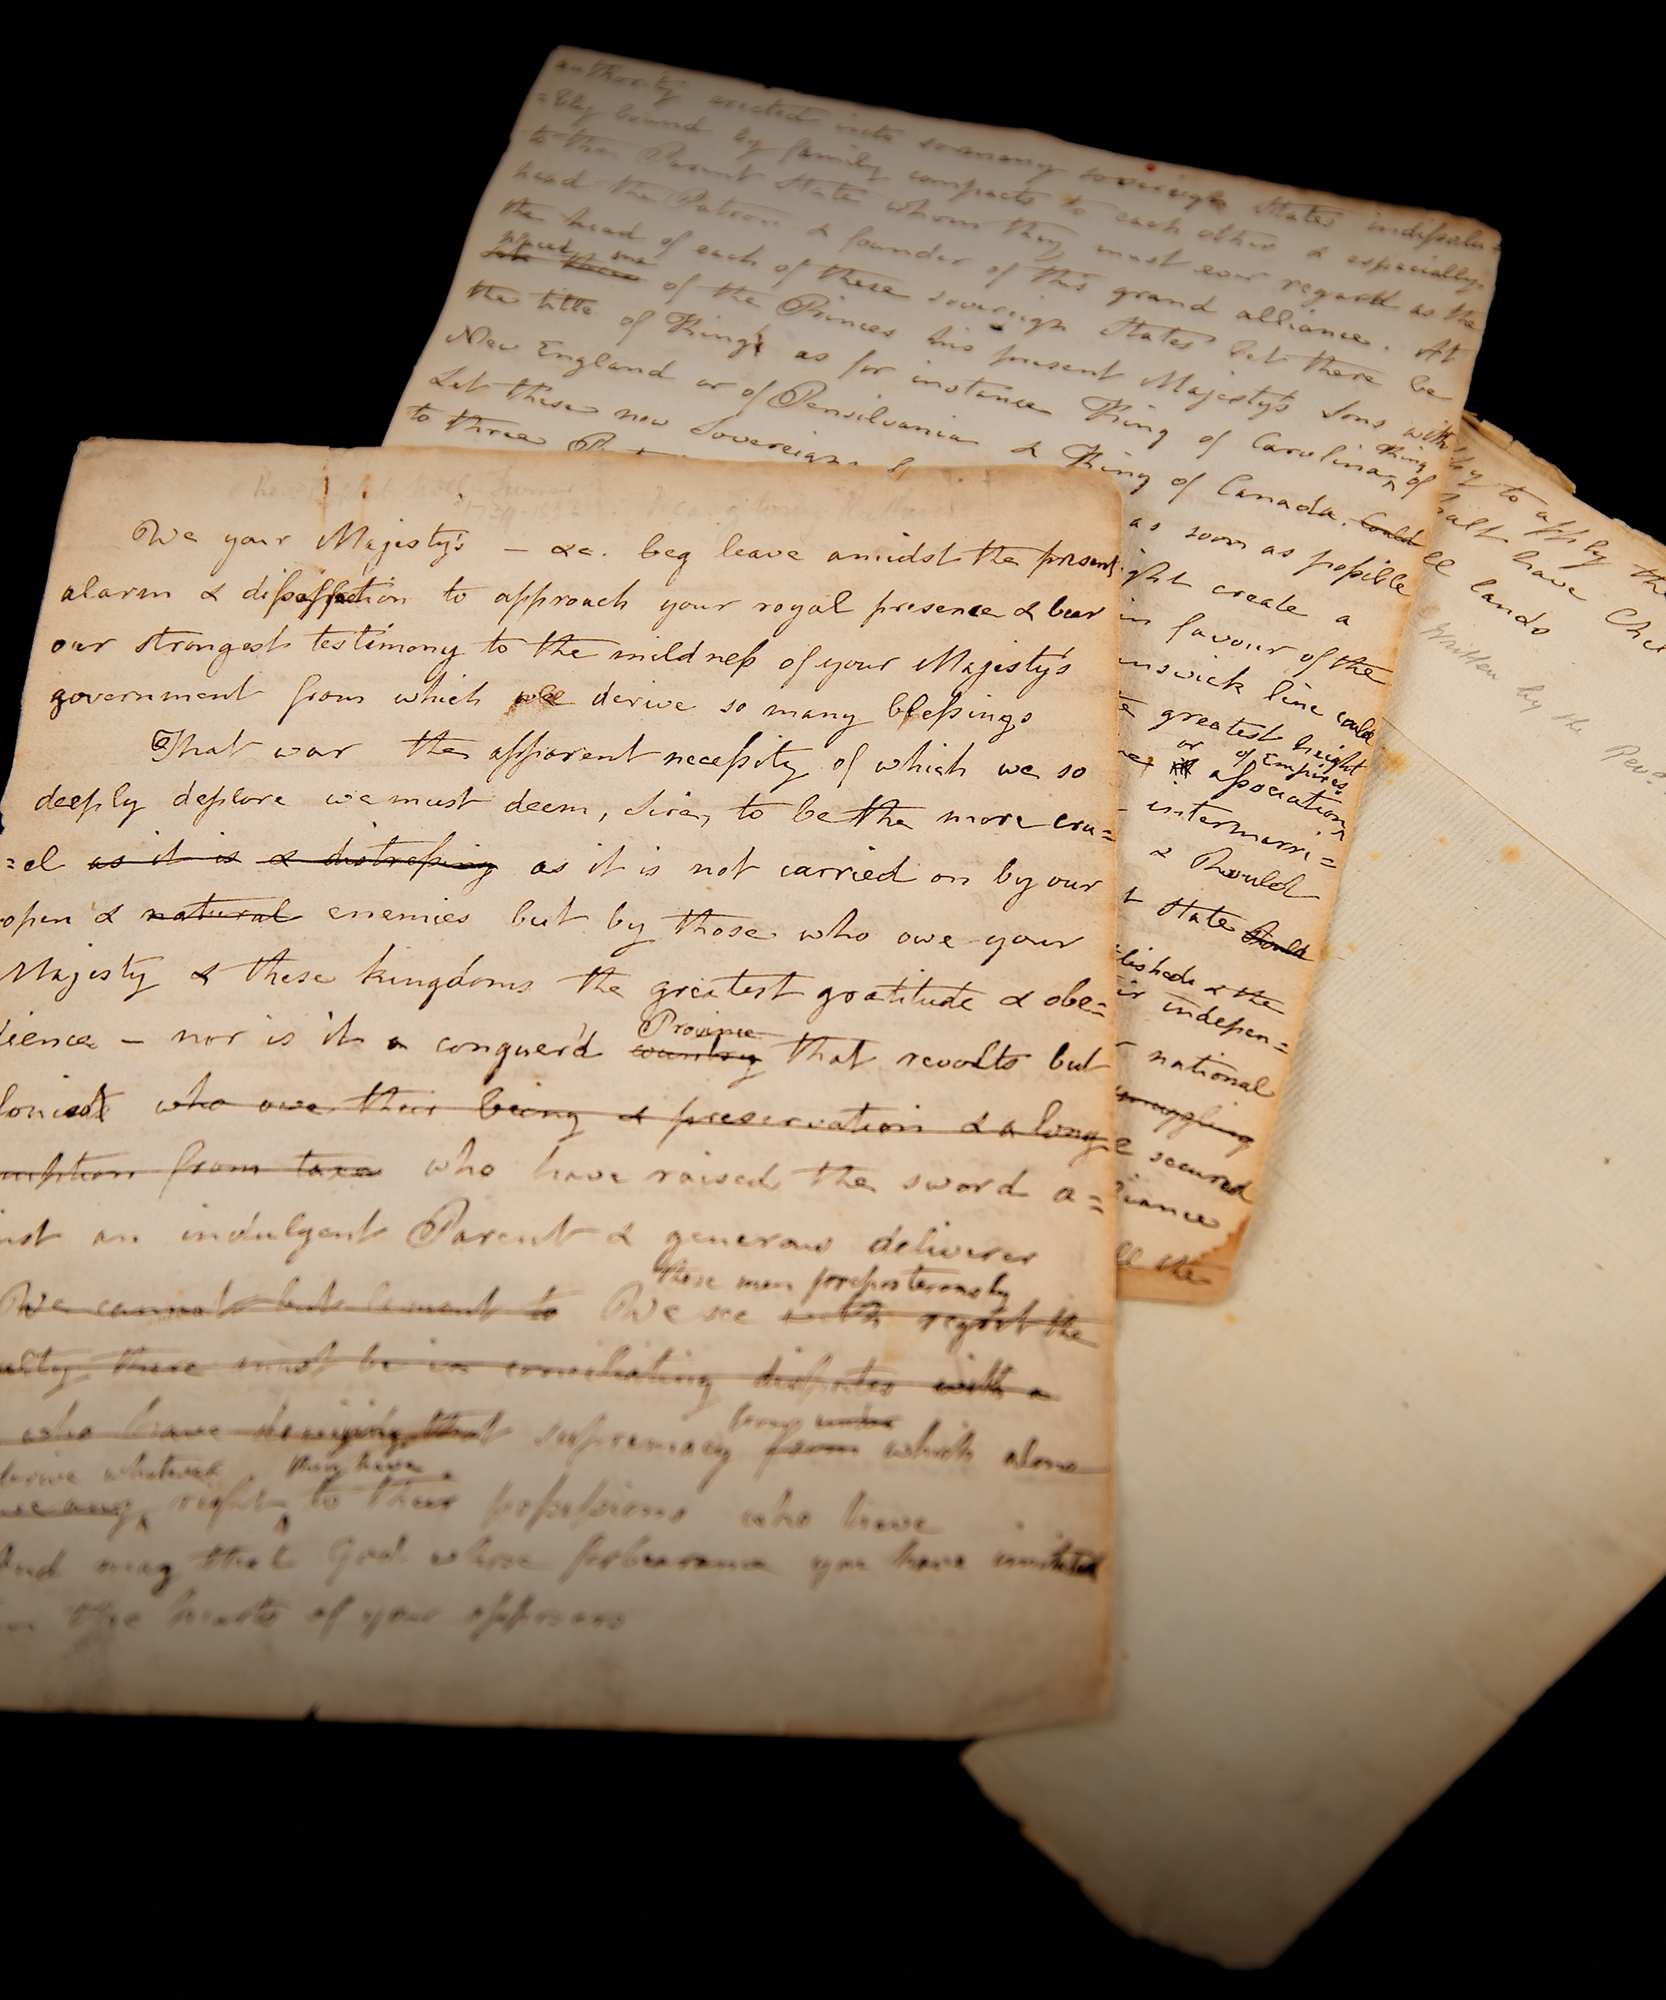 authority erected into so many sovereign States indissolu=
=bly bound by family compacts to each other & especially
to the Parent State whom they must ever regard as the
head the Patron & founder of this grand alliance. At
the head of each of these sovereign States let there be
placed one
of the Princes his present Majesty's Sons with
the title of King as for instance King of Carolina, King of
New England or of Pensilvania & King of Canada. Could
Let these new Sovereigns
as soon as possible
to three
ght create a
in favour of the
unswick line could
greatest height
or of Empires
association
intermarri=
& Should
t State should
lished & the
ir indepen=
national
struggling
e secured
liance
ll the
to apply the
halt have
ll lands
Written by the
We your Majesty's – &c. beg leave amidst the present
alarm & dissaffection to approach your royal presence & bear
our strongest testimony to the mildness of your Majesty's
government from which we derive so many blessings
That war the apparent necessity of which we so
deeply deplore we must deem, Sire, to be the more cru=
=el as it is & distressing as it is not carried on by our
open & natural enemies but by those who owe your
Majesty & these kingdoms the greatest gratitude & obe=
dience – nor is it a conquer'd country Province that revolts but
lonists who owe their being & preservation & a long
mption from taxes who have raised the sword a=
inst an indulgent Parent & generous deliverer
these men preposterously
We cannot but lament to We see with regret the
ulty there must be in conciliating disputes with a
who have denying that supremacy from under which alone
derive whatever they have
any right to their possessions who have
And may that God whose forbearance you have imitated
the hearts of your oppressors